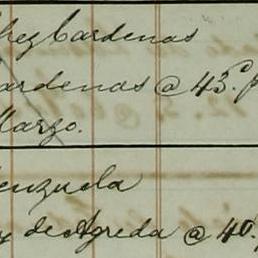 chez Cardenas
ardenas @ 43º. p
Marzo.
enzuela
y de Agreda @ 40. p